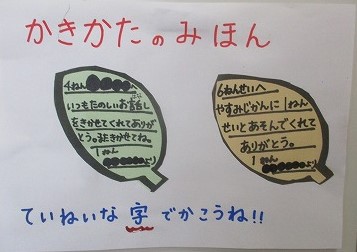 かきかたのみほん
4ねん
いつもたのしいお話し
をきかせてくれてありが
とう。またきかせてね。
1ねん
より
6ねんせいへ
やすみじかんに1ねん
せいとあそんでくれて
ありがとう。
1ねん
より
ていねいな字でかこうね!!